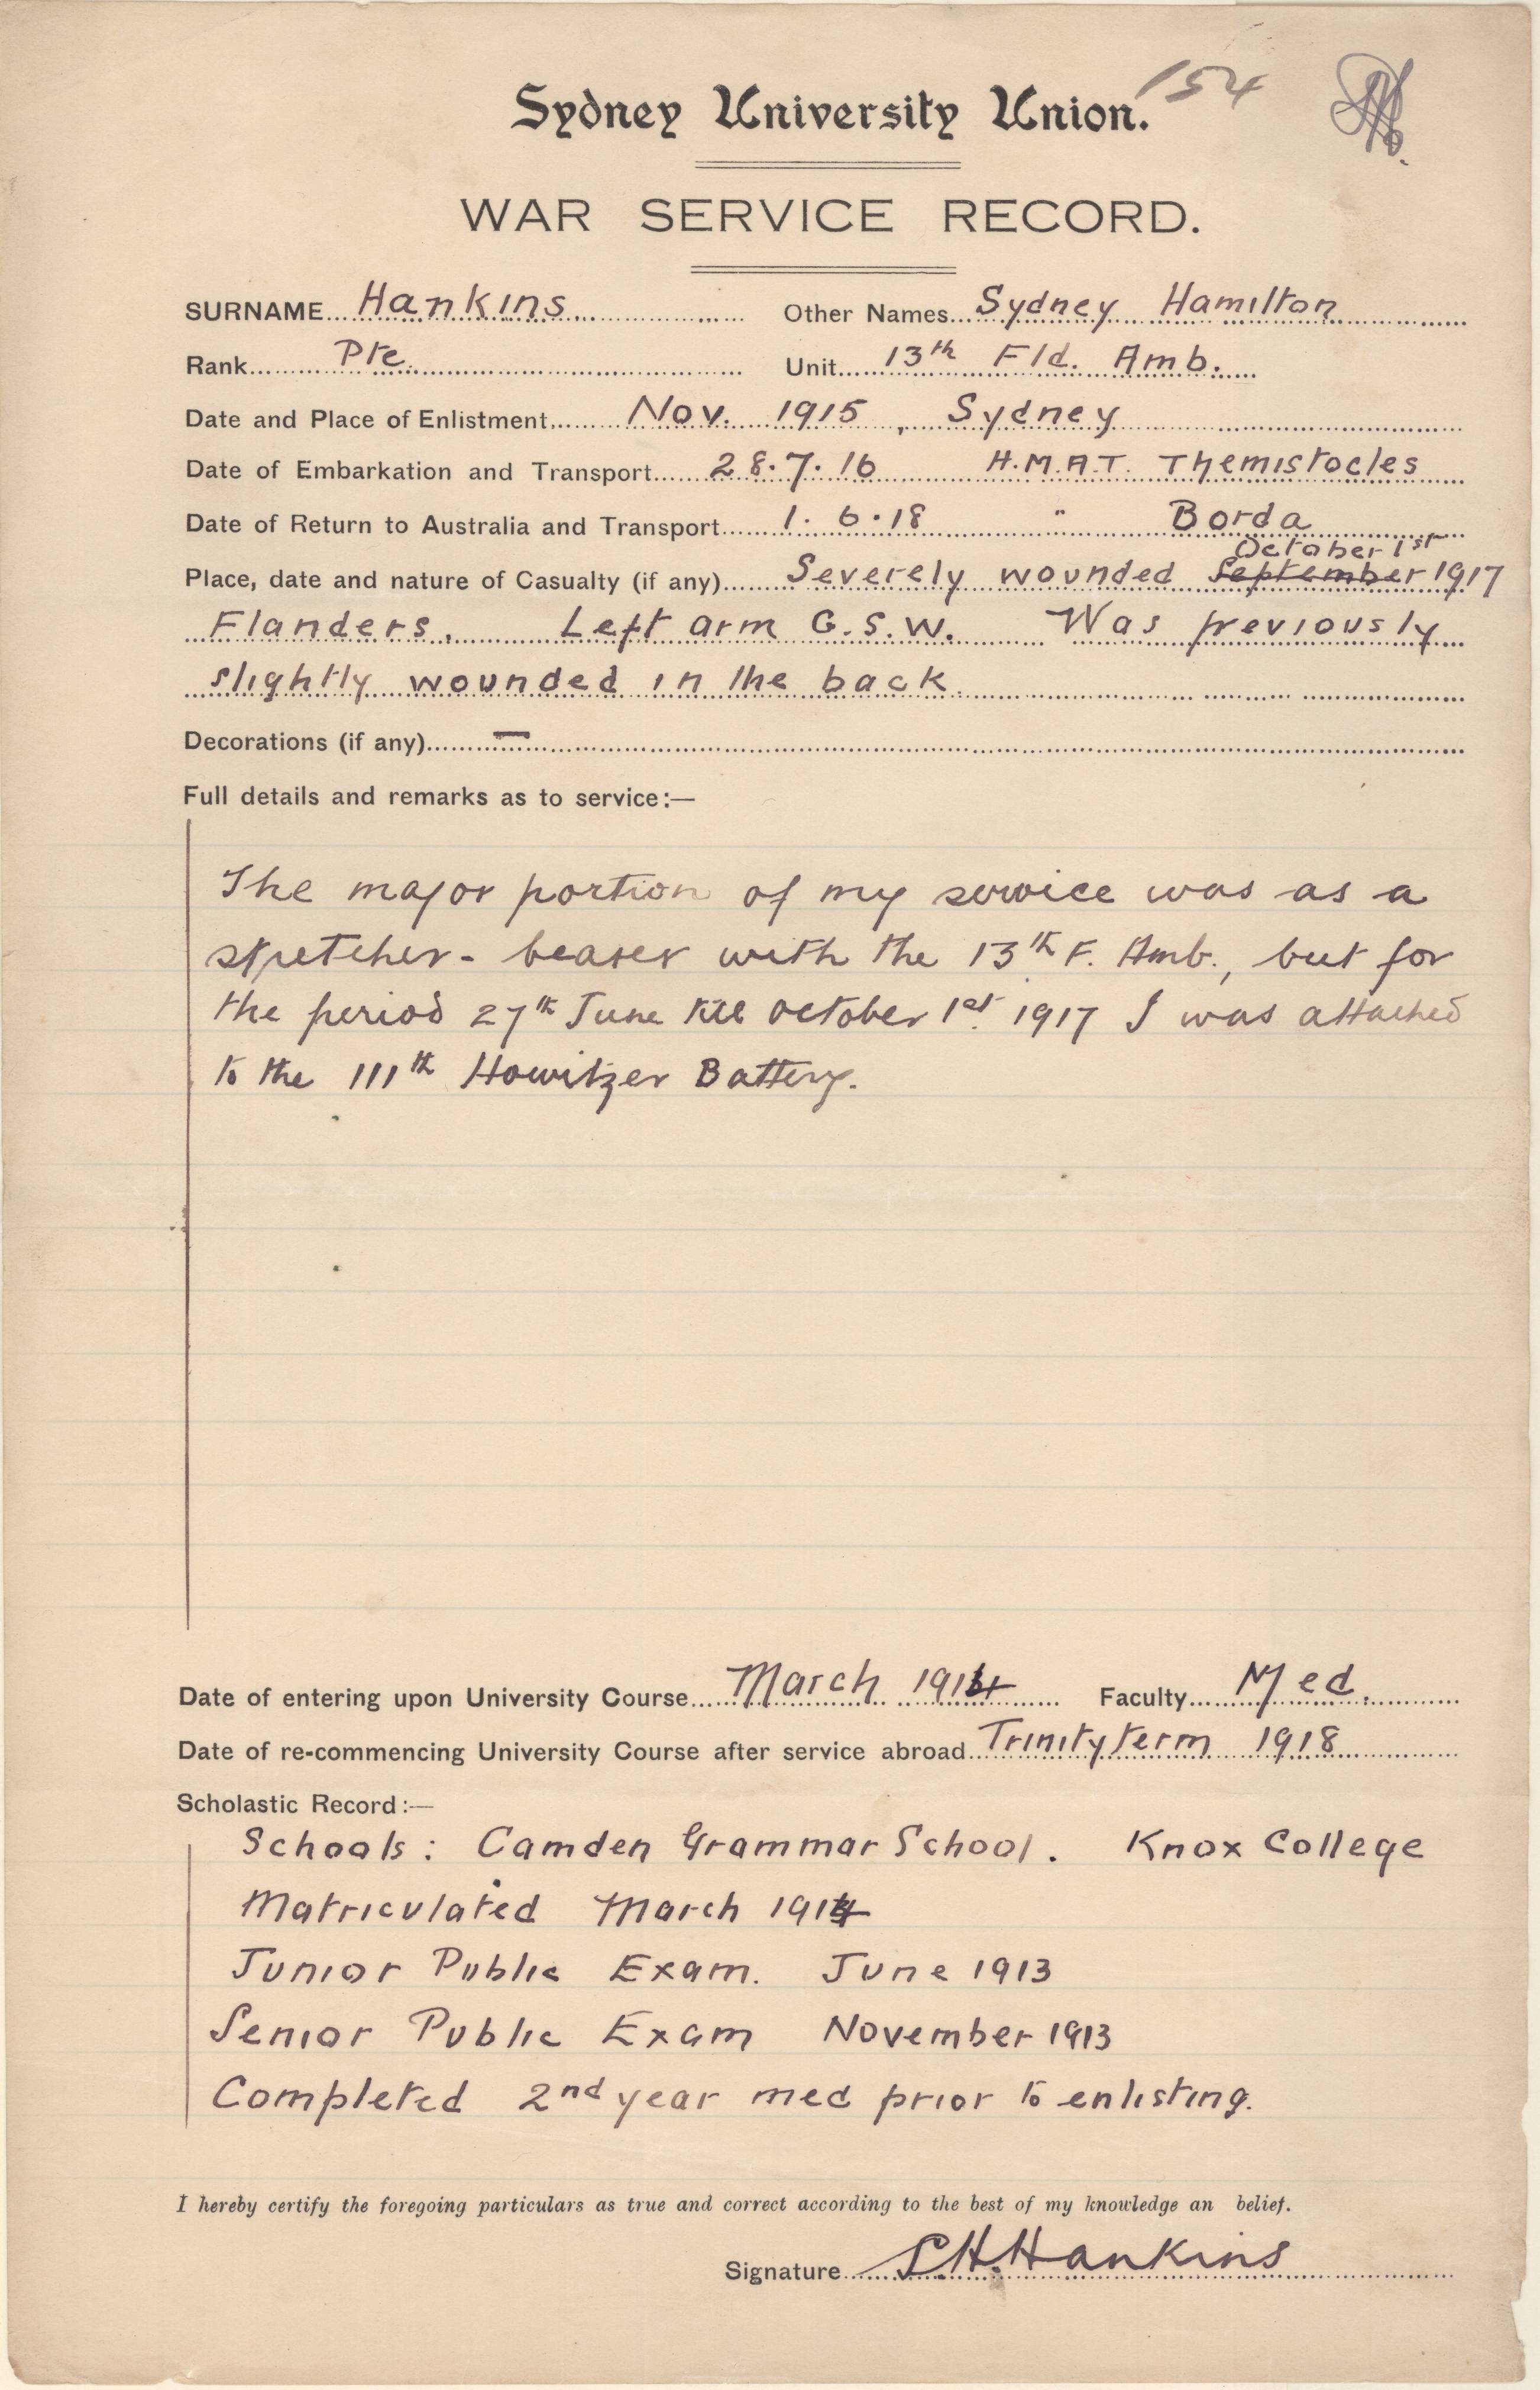 Sydney University Union. 154
WAR SERVICE RECORD.
SURNAME... Hankins ... Other Names... Sydney Hamilton
Rank... Pte ... Unit... 13th Fld. Amb.
Date and Place of Enlistment... Nov. 1915, Sydney
Date of Embarkation and Transport... 28.7.16 H.M.A.T. Themistocles
Date of Return to Australia and Transport... 1.6.18 " Borda
October 1st
Place, date and nature of Casualty (if any)... Severely wounded September 1917
Flanders. Left arm G.S.W. Was previously
slightly wounded in the back
Decorations (if any)... —
Full details and remarks as to service:—
The major portion of my service was as a
stretcher-bearer with the 13th F. Amb., but for
the period 27th June till October 1st 1917 I was attached
to the 111th Howitzer Battery.
Date of entering upon University Course... March 1914 Faculty... Med.
Date of re-commencing University Course after service abroad... Trinity term 1918
Scholastic Record:—
Schools: Camden Grammar School. Knox College
Matriculated March 1914
Junior Public Exam. June 1913
Senior Public Exam November 1913
Completed 2nd year med prior to enlisting.
I hereby certify the foregoing particulars as true and correct according to the best of my knowledge an belief.
Signature... S.H.Hankins